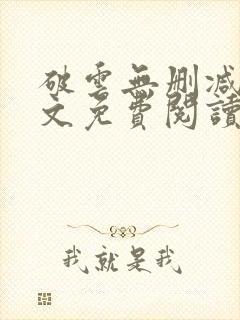 破雲無刪減
文免費閱讀
我就是我